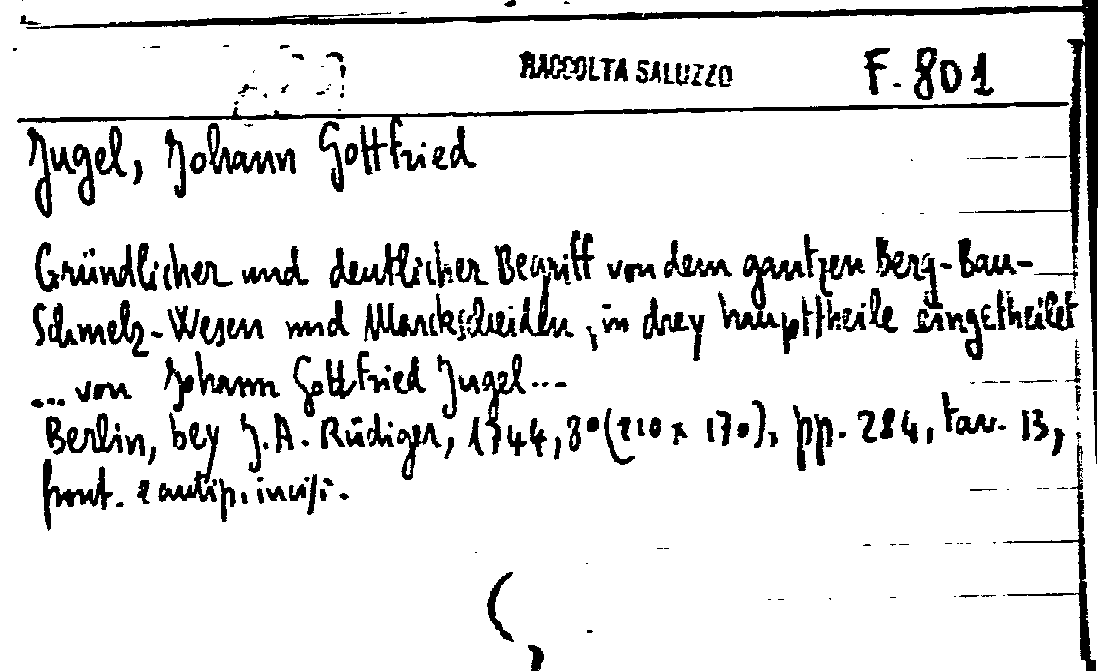 RACCOLTA SALUZZO F. 801
Jugel, Johann Gottfried
Gründlicher und deutlicher Begriff von dem gantzen Berg-Bau-
Schmelz-Wesen und Marckscheiden, in drey haupttheile eingetheilet
... von Johann Gottfried Jugel...
Berlin, bey J.A. Rüdiger, 1744, 8° (210 x 170), pp. 284, tav. 13,
front. e antip. incisi.